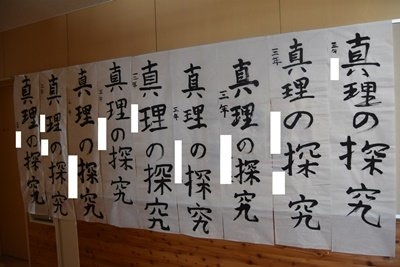 三年
真理の探究
三年
真理の探究
三年
真理の探究
三年
真理の探究
三年
真理の探究
真理の探究
真理の探究
真理の探究
真理の探究